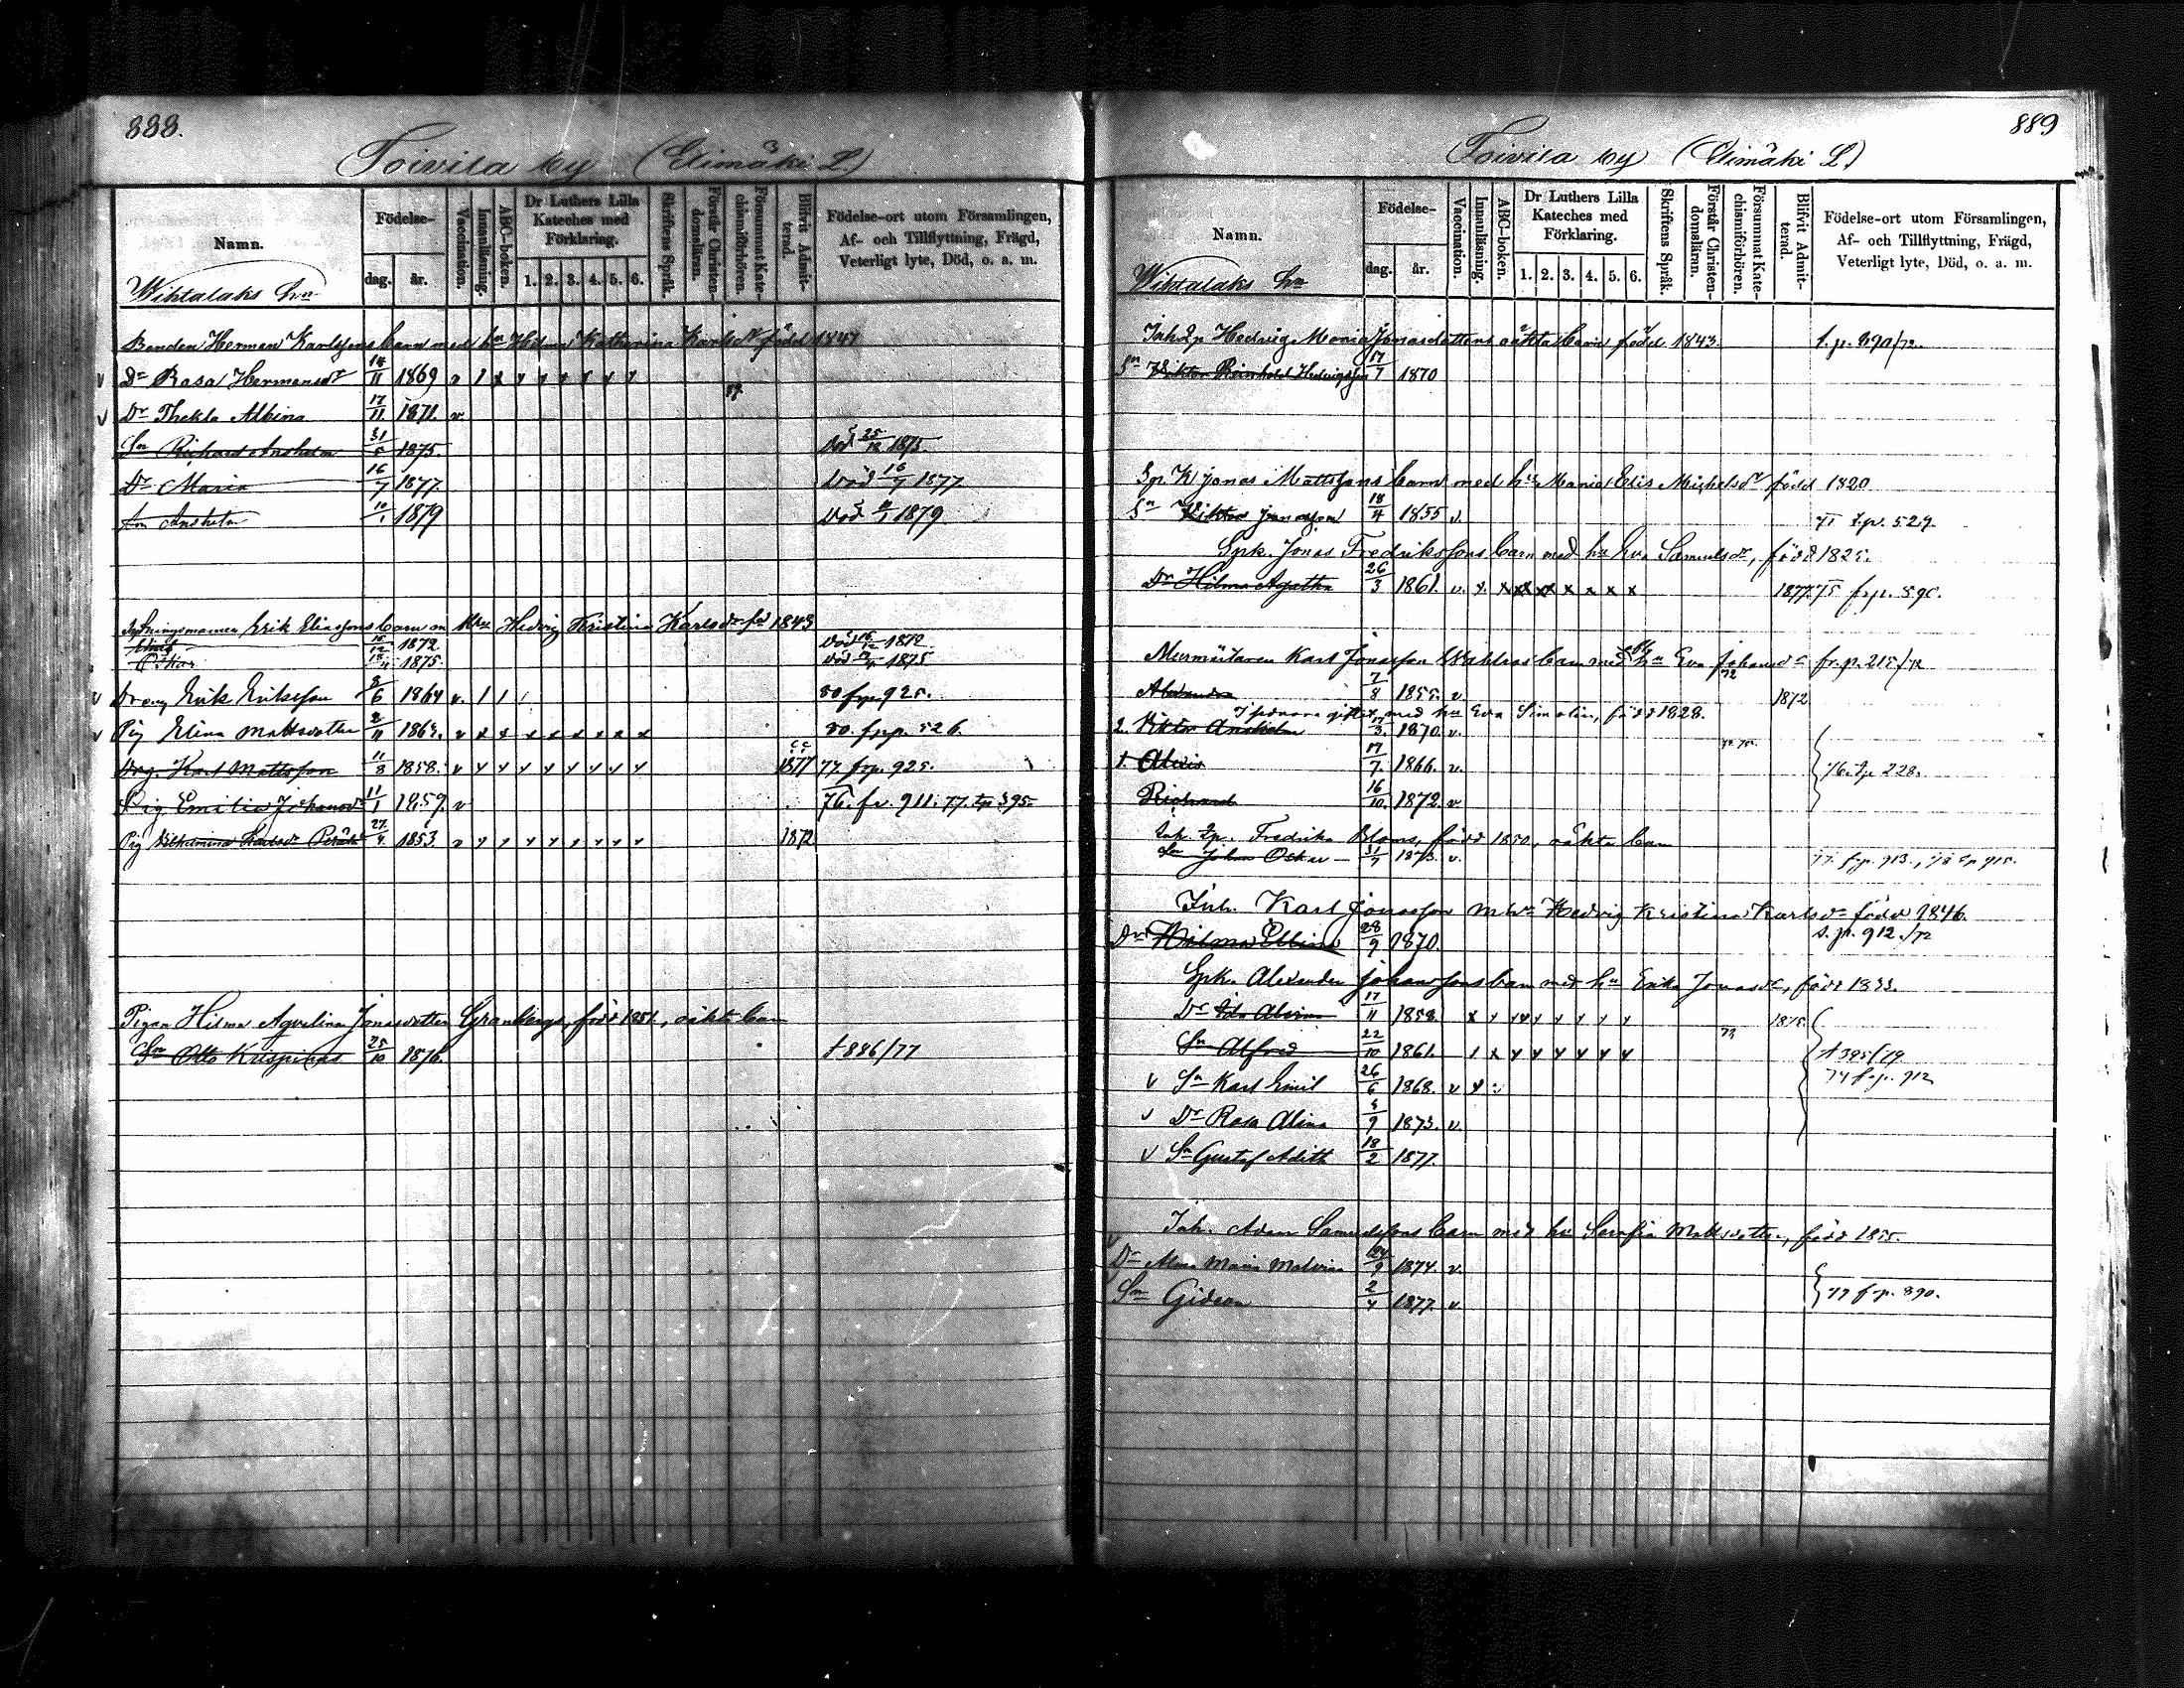 888.
Toivila by (Elimäki L.)
Namn.
Födelse-
dag.
år.
Vaccination.
Innanläsning.
ABC-boken.
Dr Luthers Lilla Kateches med Förklaring.
1. 2. 3. 4. 5. 6.
Skriftens Språk.
Förstår Christen-domsläran.
Försummat Kate-chismiförhören.
Blifvit Admit-terad.
Födelse-ort utom Församlingen, Af- och Tillflyttning, Frägd, Veterligt lyte, Död, o. a. m.
Wihtalaks hn
Bonden Herman Karlssons barn med hn Hilma Katharina Karlsdr född 1847
v Dr Rosa Hermansdr 14/11 1869 v
v Dr Thekla Albina 17/11 1871. v.
Sn Richard Anshelm 31/5 1875. Död 25/12 1875.
Dr Maria 16/7 1877. Död 16/7 1877
Sn Anshelm 10/1 1879 Död 1879
Erik Eliassons barn m Hedvig Kristina Karlsdr fd 1843
1872 Död 1872
Oskar 1875. Död 1875
v Dräng Erik Eriksson 8/6 1864 v. 80 frp. 925.
v Pig Elina Mattsdotter 2/11 1863. v x x x x x x x x 80. frp. 526.
Drg. Karl Mattsson 11/8 1858. v 1877 77. frp. 925.
Pig Emilia Johansdr 11/1 1859. v 76. fr. 911. 77. tp 595
Pig Wilhelmina Karlsdr 27/4 1853. v 1872
Pigan Hilma Aqvelina Jonasdotter Granberg, född 1851, oäkta barn
Sn Otto Krispinas 25/10 1876 t 886/77
889
Toivila by (Elimäki L.)
Namn.
Födelse-
dag.
år.
Vaccination.
Innanläsning.
ABC-boken.
Dr Luthers Lilla Kateches med Förklaring.
1. 2. 3. 4. 5. 6.
Skriftens Språk.
Förstår Christen-domsläran.
Försummat Kate-chismiförhören.
Blifvit Admit-terad.
Födelse-ort utom Församlingen, Af- och Tillflyttning, Frägd, Veterligt lyte, Död, o. a. m.
Wihtalaks hn
Inh. Qp Hedvig Maria Jonasdotters oäkta barn född 1843. t. p. 890/72.
Sn Viktor Reinhold Hedvigsson 17/7 1870
Sp. K Jonas Mattssons barn med hu Maria Elis Michelsdr född 1820
Sn Viktor Jonasson 18/4 1855 v. 71 t.p. 527.
Spk. Jonas Fredrikssons barn med hu Eva Samuelsdr, född 1825.
Dr Hilma Agatha 26/3 1861. v. 1877 75 frp. 590.
Murmästaren Karl Jonasson barn med hu Eva Johansdr fr. p. 215/72
Alexandra 7/8 1855. v 1872
gift med hu Eva Simolin, född 1828.
2. Viktor Anshelm 17/3 1870. v.
1. Alexis 17/7. 1866. v. 76. tp 228.
Richard 16/10. 1872. v
Inh. Qp. Fredrika Bloms, född 1850, oäkta barn
Sn Johan Oskar 31/7 1873. v. 77. frp. 913., 78 tp 915.
Inh. Karl Jonasson m hu Hedvig Kristina Karlsdr född 1846.
Dr Hilma Ellina 28/9 1870 s. p. 912./72
Spk. Alexander Johanssons barn med hu Erika Jonasdr, född 1833.
Dr Ida Alvina 17/11 1858. 1875.
Sn Alfred 22/10 1861. t 395/79
74 frp. 912
v Sn Karl Emil 26/6 1868. v
v Dr Rosa Alina 5/9 1873. v.
v Sn Gustaf Adith 18/2 1877.
Inh. Adam Samuelssons barn med hu Serafia Mattsdotter, född 1855.
Dr Alma Maria Malvina 24/9 1874. v.
Sn Gideon 2/4 1877. v 77 frp. 890.